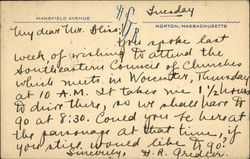 Tuesday
MANSFIELD AVENUE
NORTON, MASSACHUSETTS
My dear Mr. Bliss:
You spoke last
week of wishing to attend the
Southeastern Council of Churches
which meets in Worcester, Thursday
at 10 A.M. It takes me 1 1/2 hours
to drive there, so we shall have to
go at 8:30. Could you be here at
the parsonage at that time, if
you still would like to go?
Sincerely, H. R.